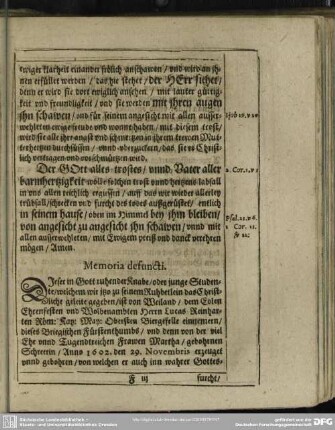 ewiger klarheit einander frölich anschawen / vnd wird an ih-
nen erfüllet werden / das hie stehet / der HErr sihet /
denn er wird sie dort ewiglich ansehen / mit lauter gütig-
keit vnd freundligkeit / vnd sie werden mit ihren augen
ihn schawen / vnd für seinem angesicht mit allen außer-
wehleten ewige freude vnd wonne haben / mit diesem trost /
wird sie alle ihre angst vnd schmertzen
Hiob 19. v
Der GOtt alles trostes / vnnd Vater aller
barmhertzigkeit wolle solchen trost vnnd hertzens labsall
in vns allen reichlich ergiessen / auff das wir wieder allerley
trübsall / schrecken vnd furcht des todes außgerüstet / entlich
in seinem hause / oben im Himmel bey ihm bleiben /
von angesicht zu angesicht ihn schawen / vnnd mit
allen außerwehleten / mit Ewigem preiß vnd danck verehren
mögen / Amen.
2. Cor. 1. v 3
Psal. 11. v
1. Cor.
Memoria defuncti.
DIeser in Gott ruhender Knabe / oder junge Studen-
te / welchem wir itzo zu seinem Ruhbetlein das Christ-
liche geleite gegeben / ist von Weiland / dem Edlen
Ehrenfesten vnd Wolbenambten Herrn Lucas Reinhar-
ten Röm: Kay: May: Obersten Biergefelle einnemern /
dieses Briegischen Fürstenthumbs / vnd denn von der viel
Ehr vnnd Tugendreichen Frawen Martha / gebohrnen
Schreerin / Anno 1602. den 29. Novembris erzeuget
vnnd gebohren / von welchen er auch inn wahrer Gottes-
F iij
furcht /